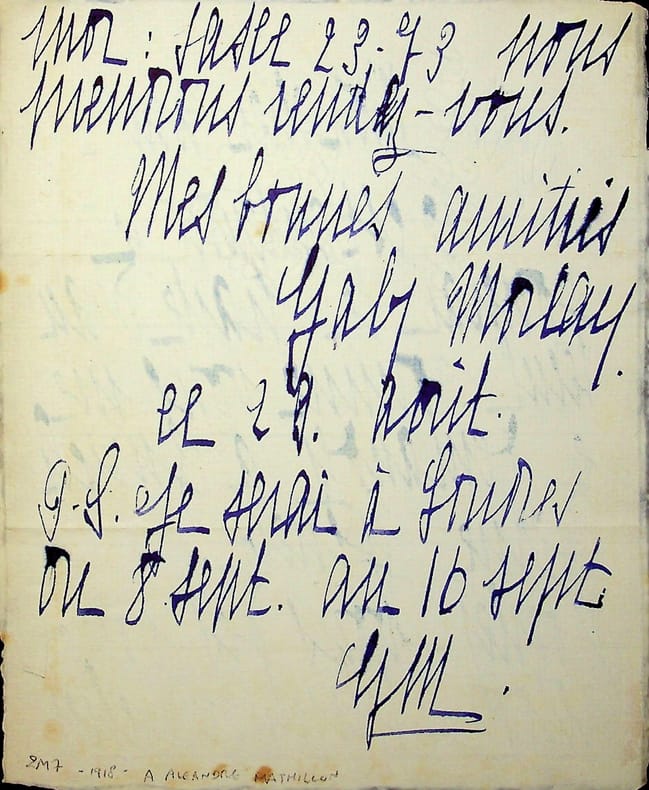 moi : Saxe 23-73 nous
prendrons rendez-vous.
Mes bonnes amitiés
Gaby Morlay.
ce 29. août.
P.S. Je serai à Londres
du 8 sept. au 16 sept.
GM.
2M7 - 1918 - A ALEANDRE MATHILLON